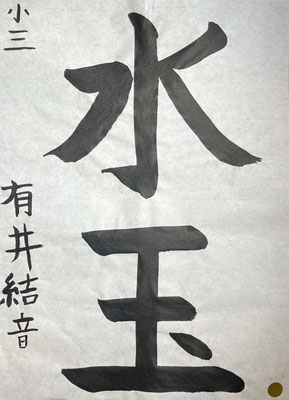 水玉
小三 有井結音